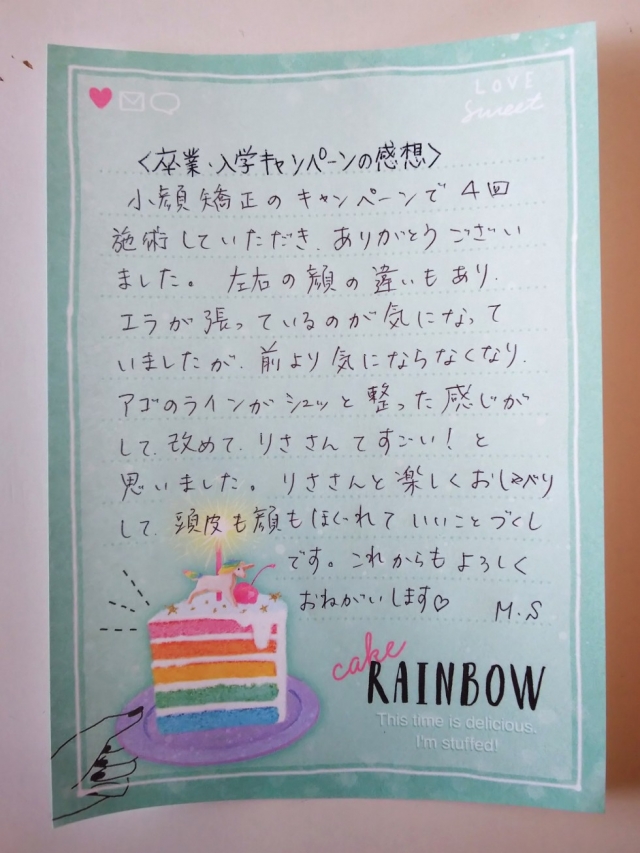 LOVE
Sweet
〈卒業、入学キャンペーンの感想〉
小顔矯正のキャンペーンで4回
施術していただき、ありがとうござい
ました。左右の顔の違いもあり、
エラが張っているのが気になって
いましたが、前より気にならなくなり、
アゴのラインがシュッと整った感じが
して、改めて、りささんてすごい！と
思いました。りささんと楽しくおしゃべり
して、頭皮も顔もほぐれていいことづくし
です。これからもよろしく
おねがいします♡ M.S
cake
RAINBOW
This time is delicious.
I'm stuffed!